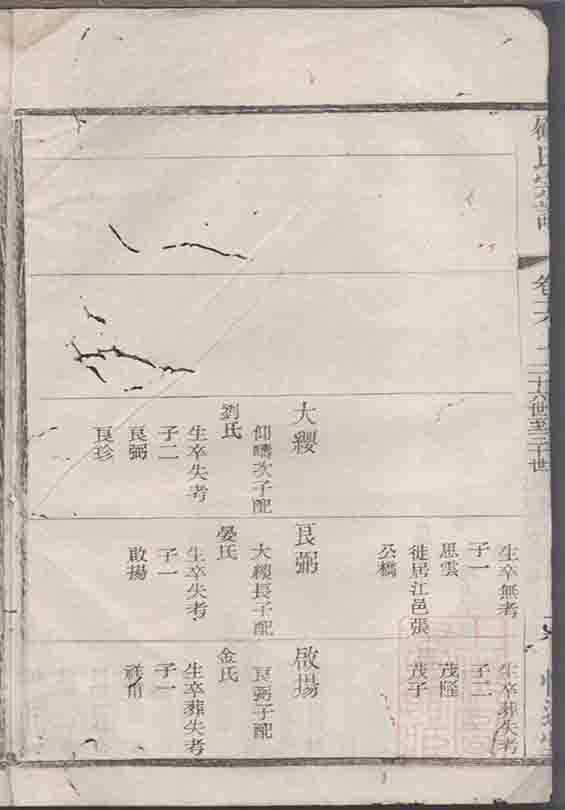 氏宗譜
卷
二十六世至三十世
大纓
仰疇次子配
劉氏
生卒失考
子二
良弼
良珍
生卒無考
子一
思雲
徙居江邑張
公橋
良弼
大纓長子配
晏氏
生卒失考
子一
啟揚
生卒葬失考
子二
茂隆
茂子
啟揚
良弼子配
金氏
生卒葬失考
子一